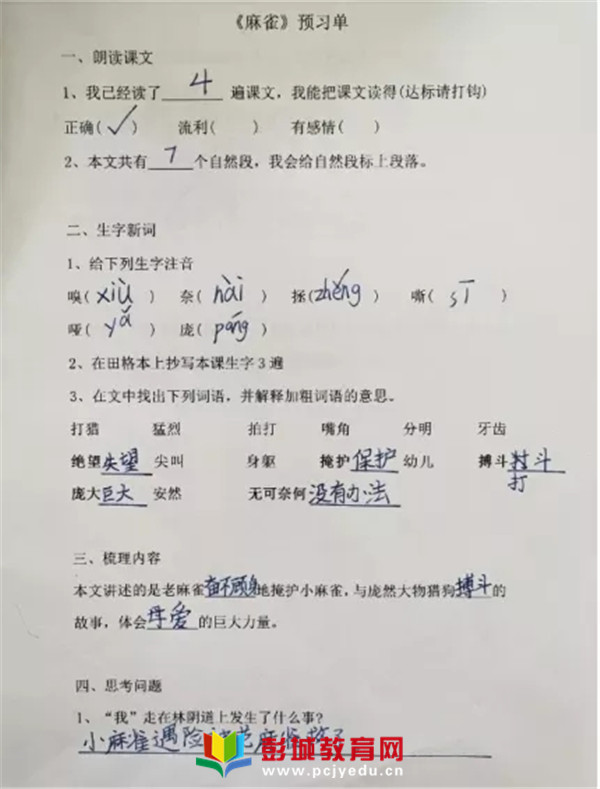 《麻雀》预习单
一、朗读课文
1、我已经读了 4 遍课文，我能把课文读得(达标请打钩)
正确(✓) 流利( ) 有感情( )
2、本文共有 7 个自然段，我会给自然段标上段落。
二、生字新词
1、给下列生字注音
嗅(xiù) 奈(nài) 拯(zhěng) 嘶(sī)
哑(yǎ) 庞(páng)
2、在田格本上抄写本课生字3遍
3、在文中找出下列词语，并解释加粗词语的意思。
打猎 猛烈 拍打 嘴角 分明 牙齿
绝望失望 尖叫 身躯 掩护保护 幼儿 搏斗对斗
打
庞大巨大 安然 无可奈何没有办法
三、梳理内容
本文讲述的是老麻雀奋不顾身地掩护小麻雀，与庞然大物猎狗搏斗的
故事，体会母爱的巨大力量。
四、思考问题
1、“我”走在林阴道上发生了什么事?
小麻雀遇险
彭城教育网
www.pcjyedu.cn